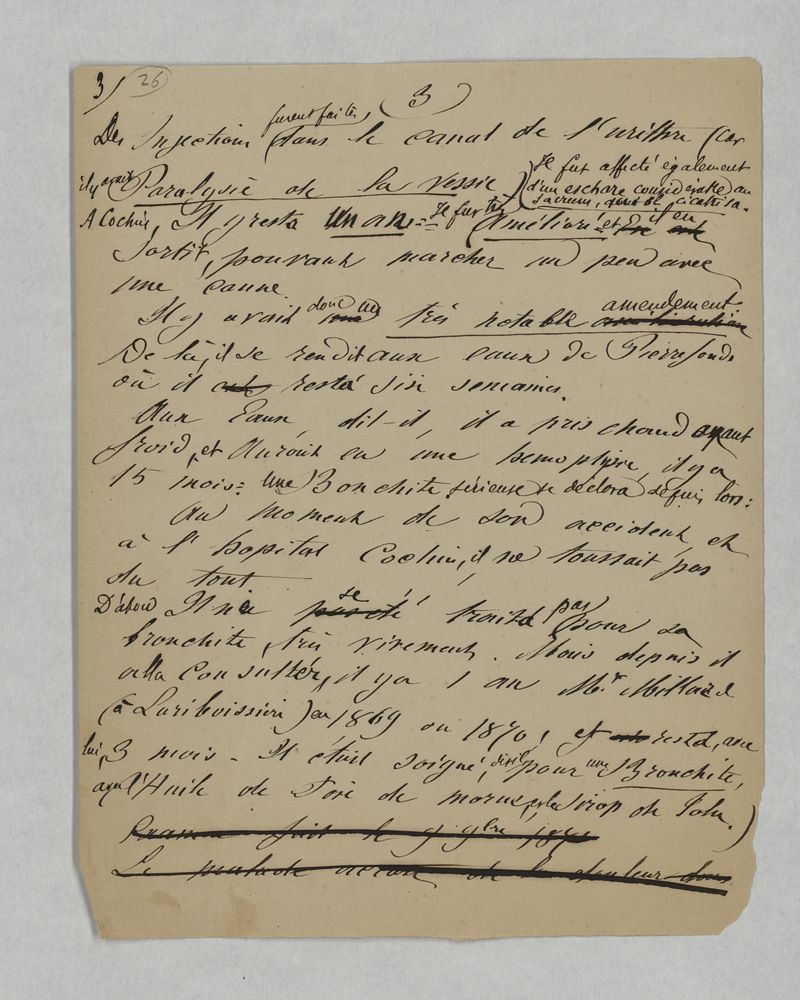 3/ 26 (3)
furent faites
Des Injections dans le canal de l'urèthre (car
il y avait Paralysie de la vessie) Je fut affecté également
d'un eschare considérable au
sacrum, dont il cicatrisa.
A Cochin, Il y resta un an. Je fus très Amélioré et il en
sortit, pouvant marcher un peu avec
une canne.
Il y avait donc un très notable amendement
De là, il se rendit aux eaux de Pierrefonds
où il resta six semaines.
Aux Eaux, dit-il, il a pris chaud ayant
froid, et aurait eu une hemoptysie, il y a
15 mois: Une Bronchite sérieuse se déclara depuis lors:
Au moment de son accident, et
à l'hopital Cochin, il ne toussait pas
du tout
D'abord Il n'a se traité pas pour sa
bronchite, très vivement. Mais depuis il
alla consulter, il y a 1 an Mr Millard
(à Lariboisière) en 1869 ou 1870, et resta, avec
lui, 3 mois - Il était soigné, dit-il, pour une Bronchite,
avec l'Huile de Foie de morue, et le Sirop de Tolu.)
Examen fait le 9 9bre 1871
Le malade accuse de la douleur dans